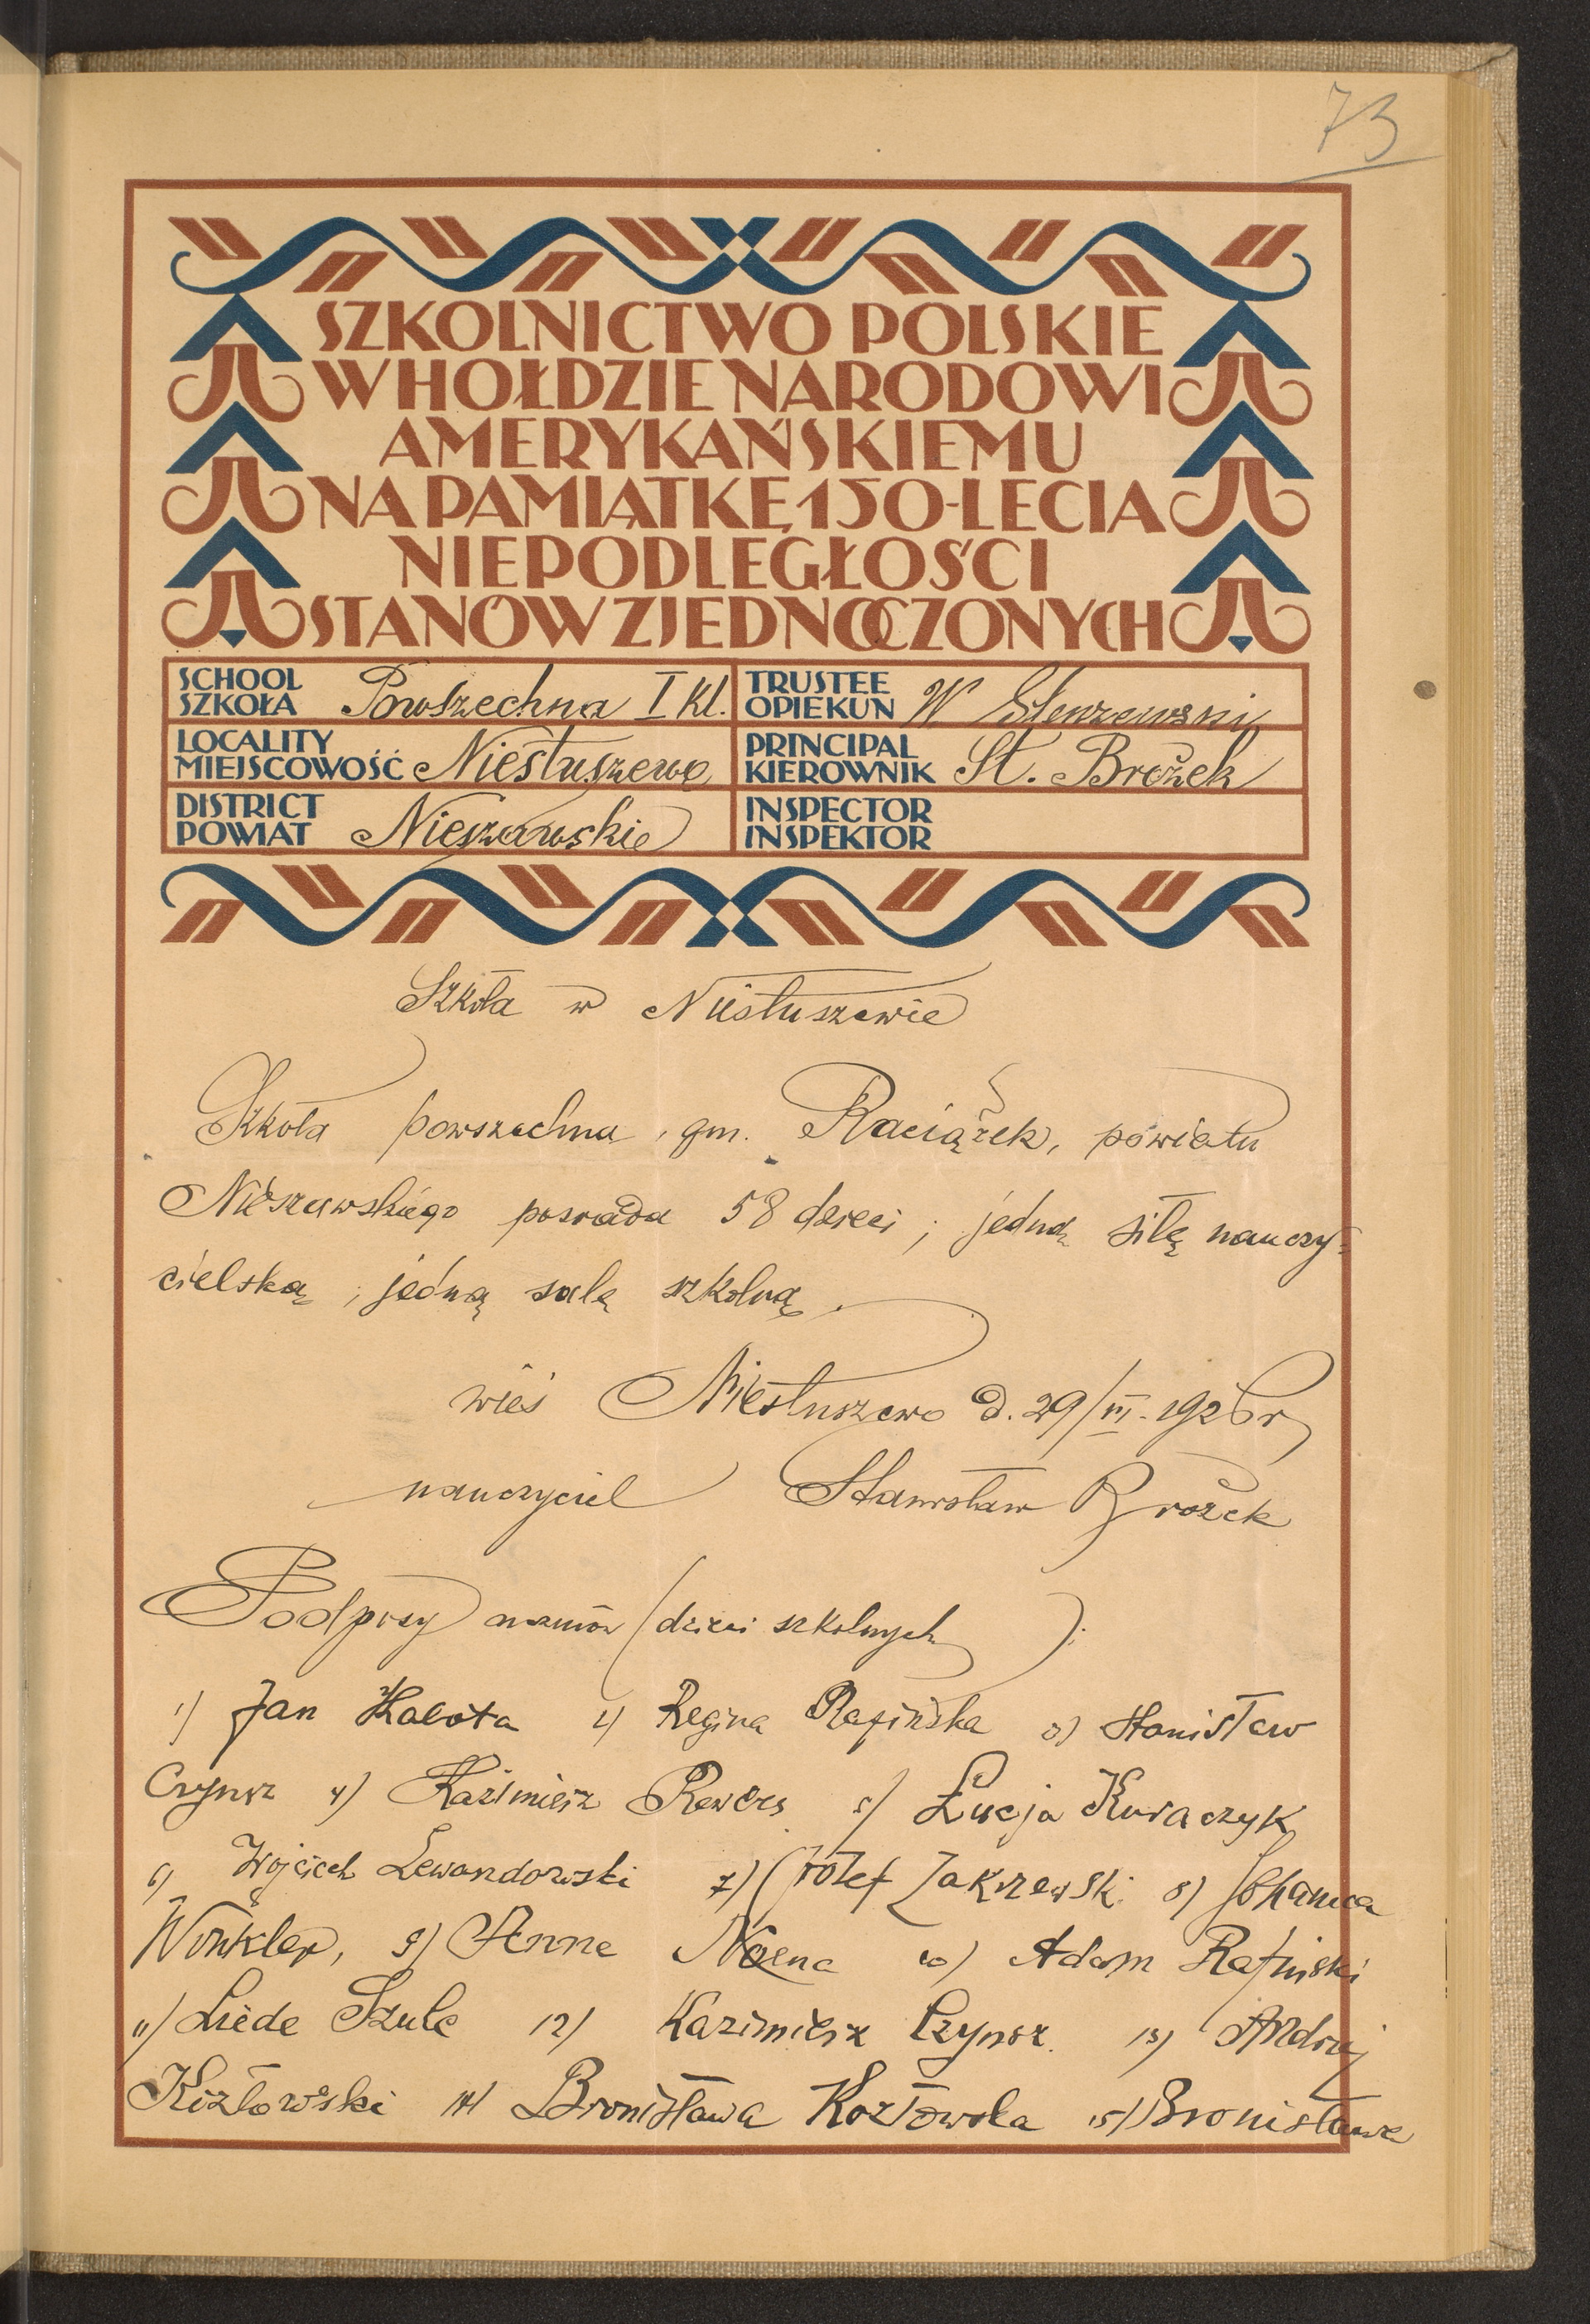 73
SZKOLNICTWO POLSKIE
W HOŁDZIE NARODOWI
AMERYKAŃSKIEMU
NA PAMIĄTKĘ 150-LECIA
NIEPODLEGŁOŚCI
STANÓW ZJEDNOCZONYCH
SCHOOL SZKOŁA Powszechna I kl. TRUSTEE OPIEKUN W
LOCALITY MIEJSCOWOŚĆ Niestuszewo PRINCIPAL KIEROWNIK St. Brożek
DISTRICT POWIAT Nieszawskie INSPECTOR INSPEKTOR
Szkoła w Niestuszewie
Szkoła powszechna, gm. Raciążek, powiatu
Nieszawskiego posiada 58 dzieci; jedną siłę nauczy-
cielską; jedną salę szkolną.
wieś Niestuszewo d. 29/III. 1926 r
nauczyciel Stanisław Brożek
Podpisy uczniów (dzieci szkolnych):
1) Jan 2) Regina Rafińska 3) Stanisław
Czynsz 4) Kazimierz Rewers 5) Łucja Kuraczyk
6) Wojciech Lewandowski 7) Józef Zakrzewski 8)
Winkler, 9) Anna 10) Adam Rafiński
11) Szulc 12) Kazimierz Czynsz. 13) Andrzej
Kozłowski 14) Bronisława Kozłowska 15) Bronisława